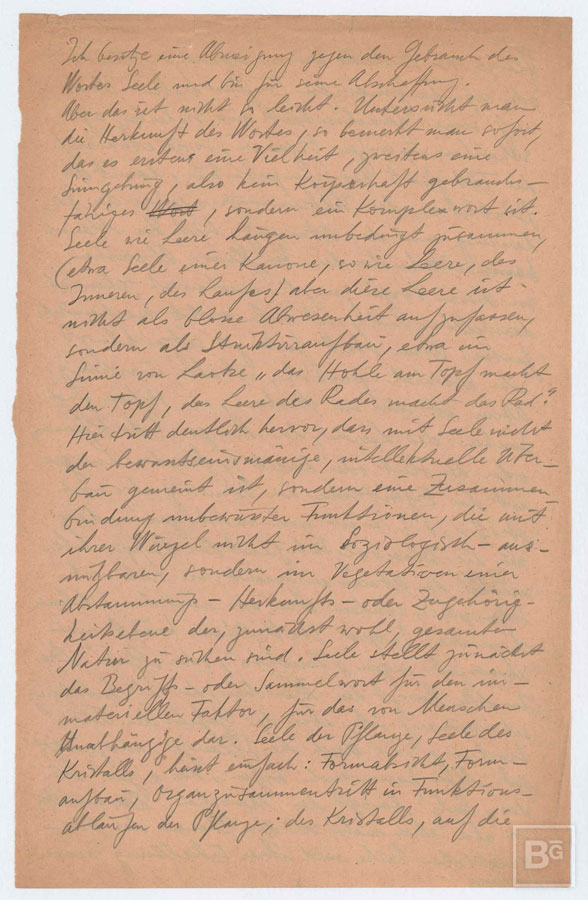 Ich besitze eine Abneigung gegen den Gebrauch des
Wortes Seele und bin für seine Abschaffung.
Aber das ist nicht so leicht. Untersucht man
die Herkunft des Wortes, so bemerkt man sofort,
das es erstens eine Vielheit, zweitens eine
Sinngebung, also kein Körperhaft gebrauchs-
fähiges Wort, sondern ein Komplexwort ist.
Seele wie Leere hängen unbedingt zusammen,
(etwa Seele einer Kanone, sowie Leere, des
Inneren, des Laufes) aber diese Leere ist
nicht als blosse Abwesenheit aufzufassen,
sondern als Strukturaufbau, etwa im
Sinne von Laotse „das Hohle am Topf macht
den Topf, das Leere des Rades macht das Rad."
Hier tritt deutlich hervor, dass mit Seele nicht
der bewusstseinsmässige, intellektuelle Über-
bau gemeint ist, sondern eine Zusammen-
bindung unbewusster Funktionen, die mit
ihrer Wurzel nicht im Soziologisch-aus-
nutzbaren, sondern im Vegetativen einer
Abstammungs- Herkunfts- oder Zugehörig-
keitsebene der, zunächst wohl, gesamten
Natur zu suchen sind. Seele stellt zunächst
das Begriffs- oder Sammelwort für den im-
materiellen Faktor, für das von Menschen
Unabhängige dar. Seele der Pflanze, Seele des
Kristalls, heisst einfach: Formabsicht, Form-
aufbau, Organzusammentritt in Funktions-
abläufen der Pflanze, des Kristalls, auf die
BG